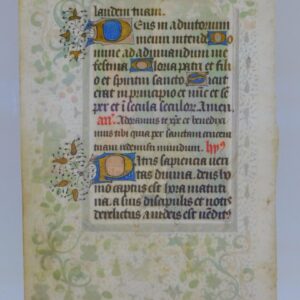 laudem tuam.
Deus in adiutorium
meum intende Do
mine ad adiuuandum me
festina Gloria patri et filio
o et spiritui sancto Sicut
erat in principio et nūc et sē
per et ī secula seculorē Amen
añ. Adoramus te xp̄e et benedici
mus tibi quia per sanctam crucem
tuam redemisti mundum. hy9
Patris sapiencia ueri
tas diuina, deus ho
mo captus est hora matuti
na, a suis discipulis et notis
derelictus a iudeis est vēdit9